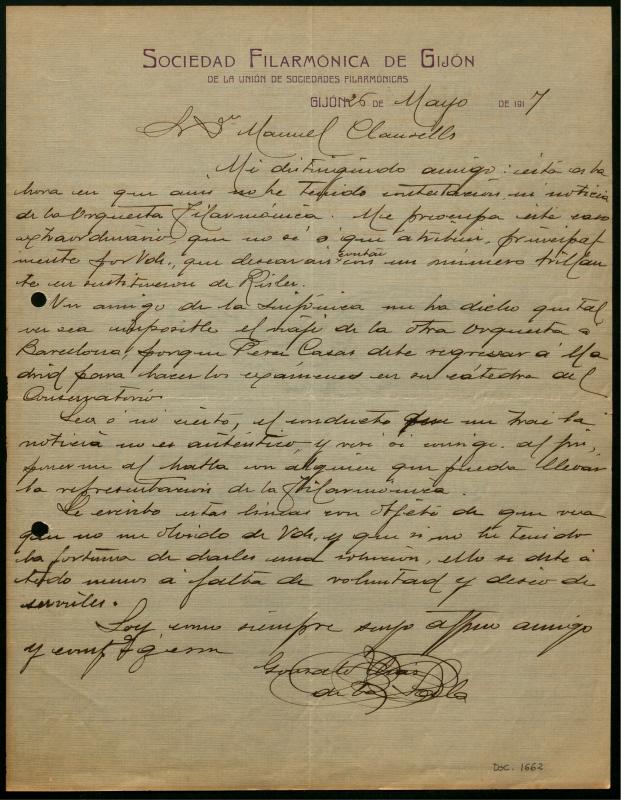 SOCIEDAD FILARMÓNICA DE GIJÓN
DE LA UNIÓN DE SOCIEDADES FILARMÓNICAS
GIJÓN 26 DE Mayo DE 1917
Sr Dn Manuel Clausells
Mi distinguido amigo: esta es la
hora en que aun no he tenido contestación ni noticia
de la Orquesta Filarmónica. Me preocupa este caso
extraordinario, que no sé á que atribuir, principal
mente por Vds., que deseaban contar con un numero brillan
te en sustitucion de Risler.
Un amigo de la Sinfónica me ha dicho que tal
vez sea imposible el viaje de la otra Orquesta a
Barcelona, porque Perez Casas debe regresar á Ma
drid para hacer los exámenes en su cátedra del
Conservatorio.
Sea ó no cierto, el conducto que me trae la
noticia no es auténtico, y veré si consigo al fin,
ponerme al habla con alguien que pueda llevar
la representación de la Filarmónica.
Le escribo estas lineas con objeto de que vea
que no me olvido de Vds. y que si no he tenido
la fortuna de darles una solución, ello se debe á
todo menos á falta de voluntad y deseo de
servirles.
Soy como siempre suyo affmo amigo
y
Gonzalo
de la
Doc. 1662